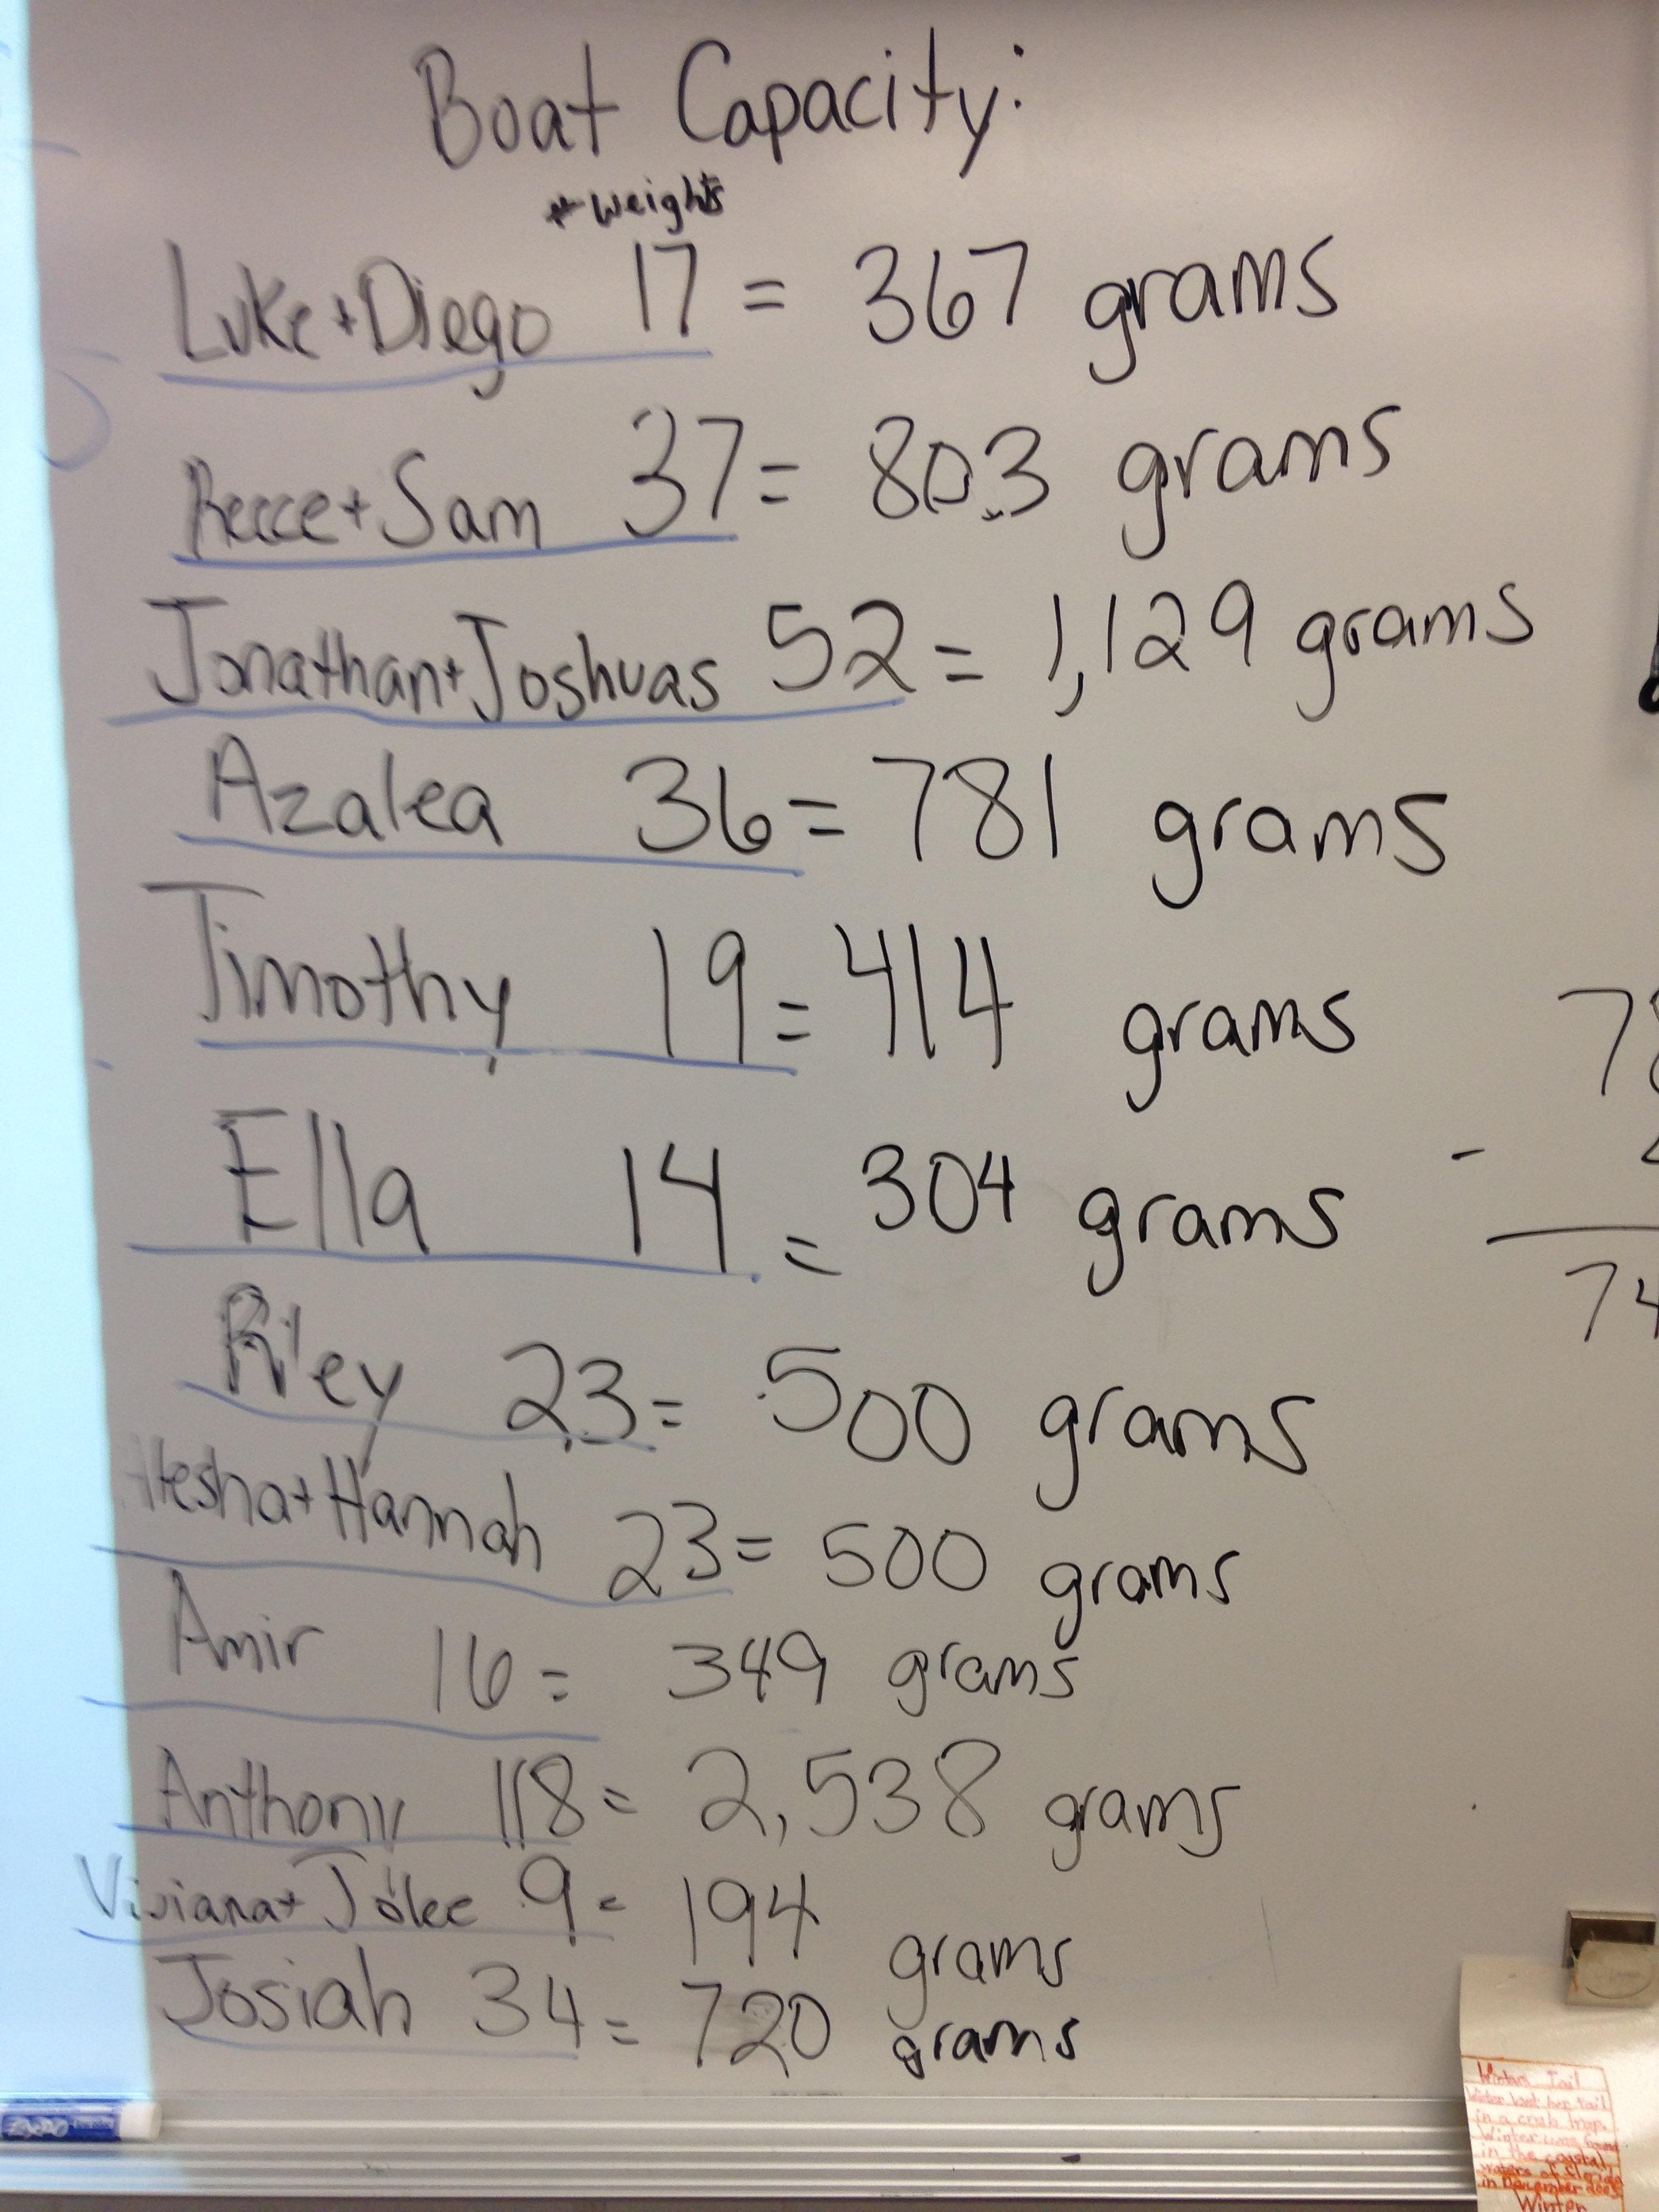 Boat Capacity:
# weights
Luke + Diego 17 = 367 grams
Reece + Sam 37 = 803 grams
Jonathan + Joshuas 52 = 1,129 grams
Azalea 36 = 781 grams
Timothy 19 = 414 grams
Ella 14 = 304 grams
Riley 23 = 500 grams
+ Hannah 23 = 500 grams
Amir 16 = 349 grams
Anthony 118 = 2,538 grams
Viviana + Jolee 9 = 194 grams
Josiah 34 = 720 grams
78
-
74
EXPO
Winters Tail
Winter lost her tail
in a crab trap.
Winter was found
in the crystal
waters of Florida
in December 2005
Winter